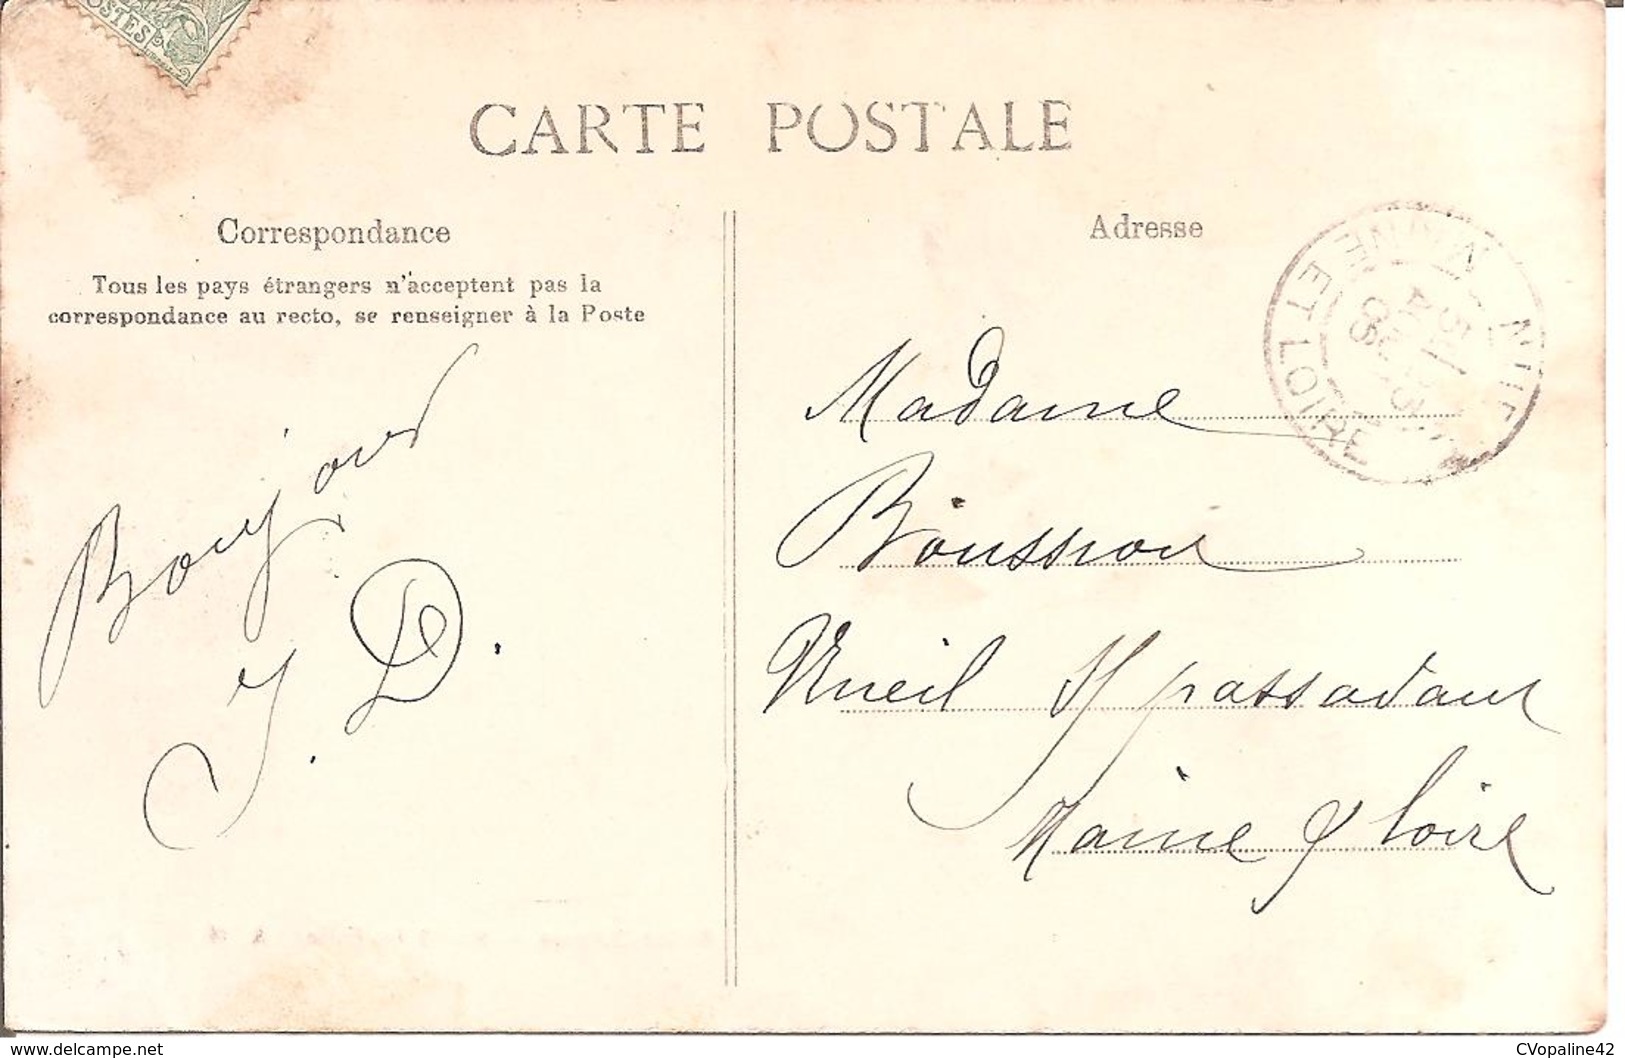 POSTES
CARTE POSTALE
Correspondance
Tous les pays étrangers n'acceptent pas la
correspondance au recto, se renseigner à la Poste
Bonjour
J. D.
Adresse
MAINE ET LOIRE
Madame
Boussion
Nueil S/ passavant
Maine & Loire
www.delcampe.net
CVopaline42